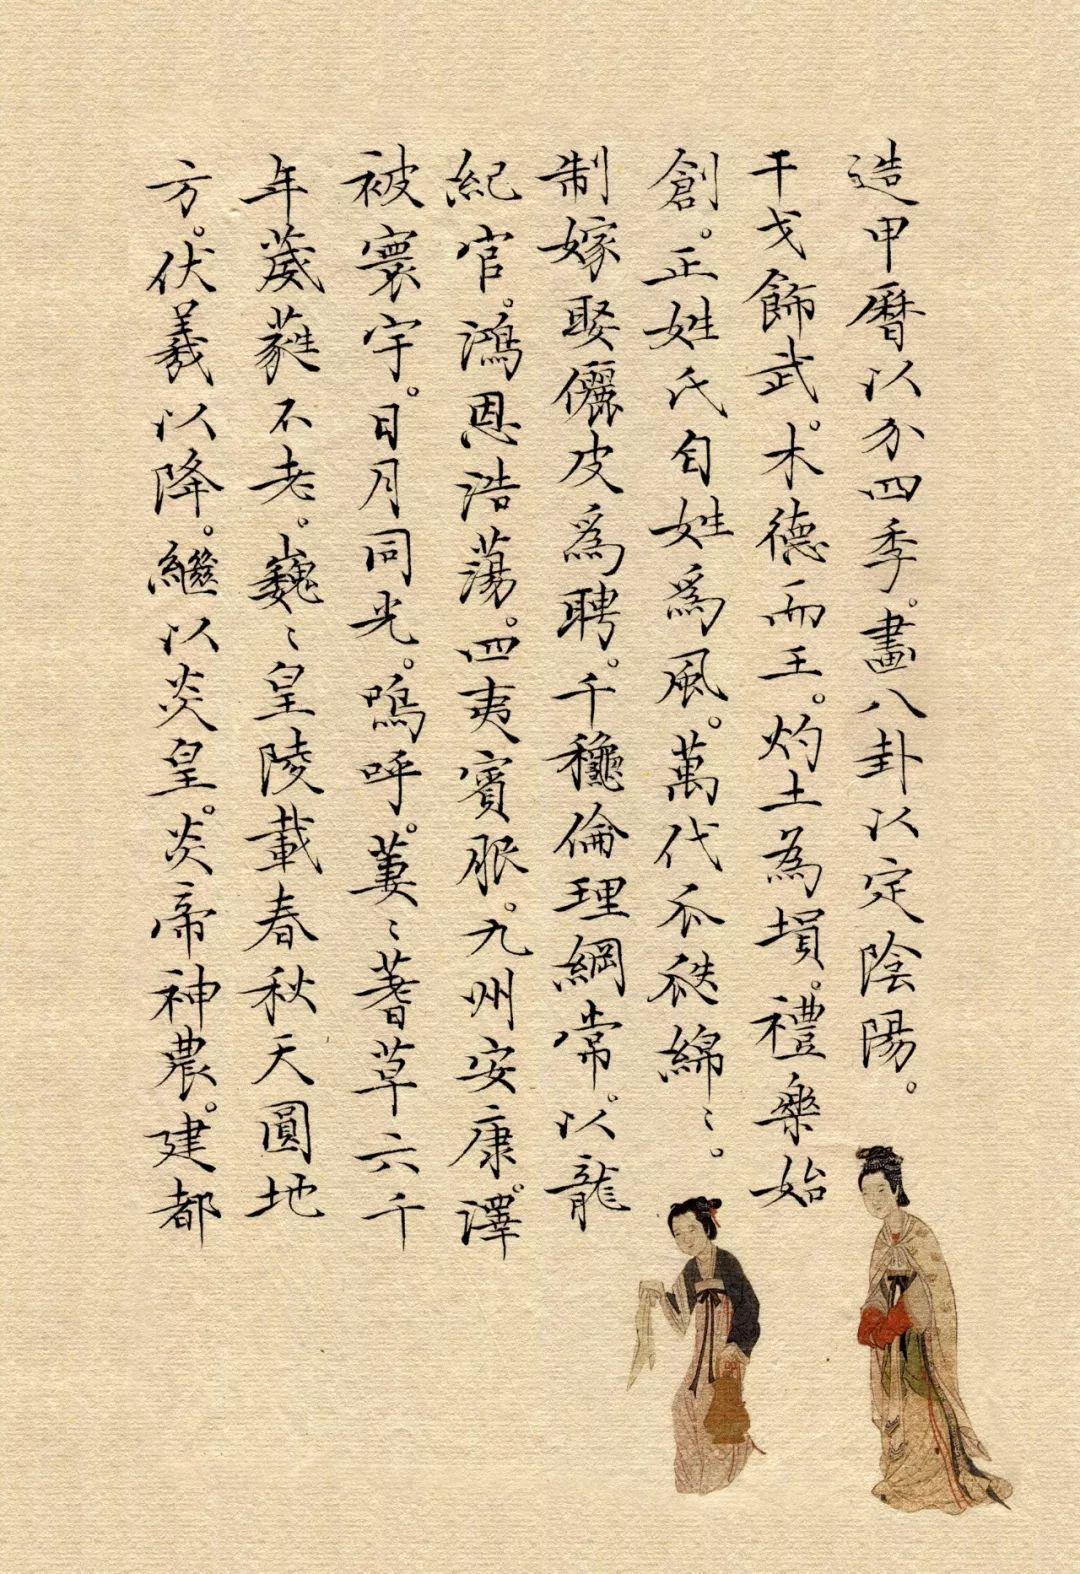 造甲曆以分四季。畫八卦以定陰陽。
干戈飾武。木德而王。灼土為塤。禮樂始
創。正姓氏自姓爲風。萬代瓜瓞綿〻。
制嫁娶儷皮爲聘。千穐倫理綱常。以龍
紀官。鴻恩浩蕩。四夷賓服。九州安康。澤
被寰宇。日月同光。嗚呼。萋〻蓍草六千
年葳蕤不老。巍〻皇陵載春秋天圓地
方。伏羲以降。繼以炎皇。炎帝神農。建都